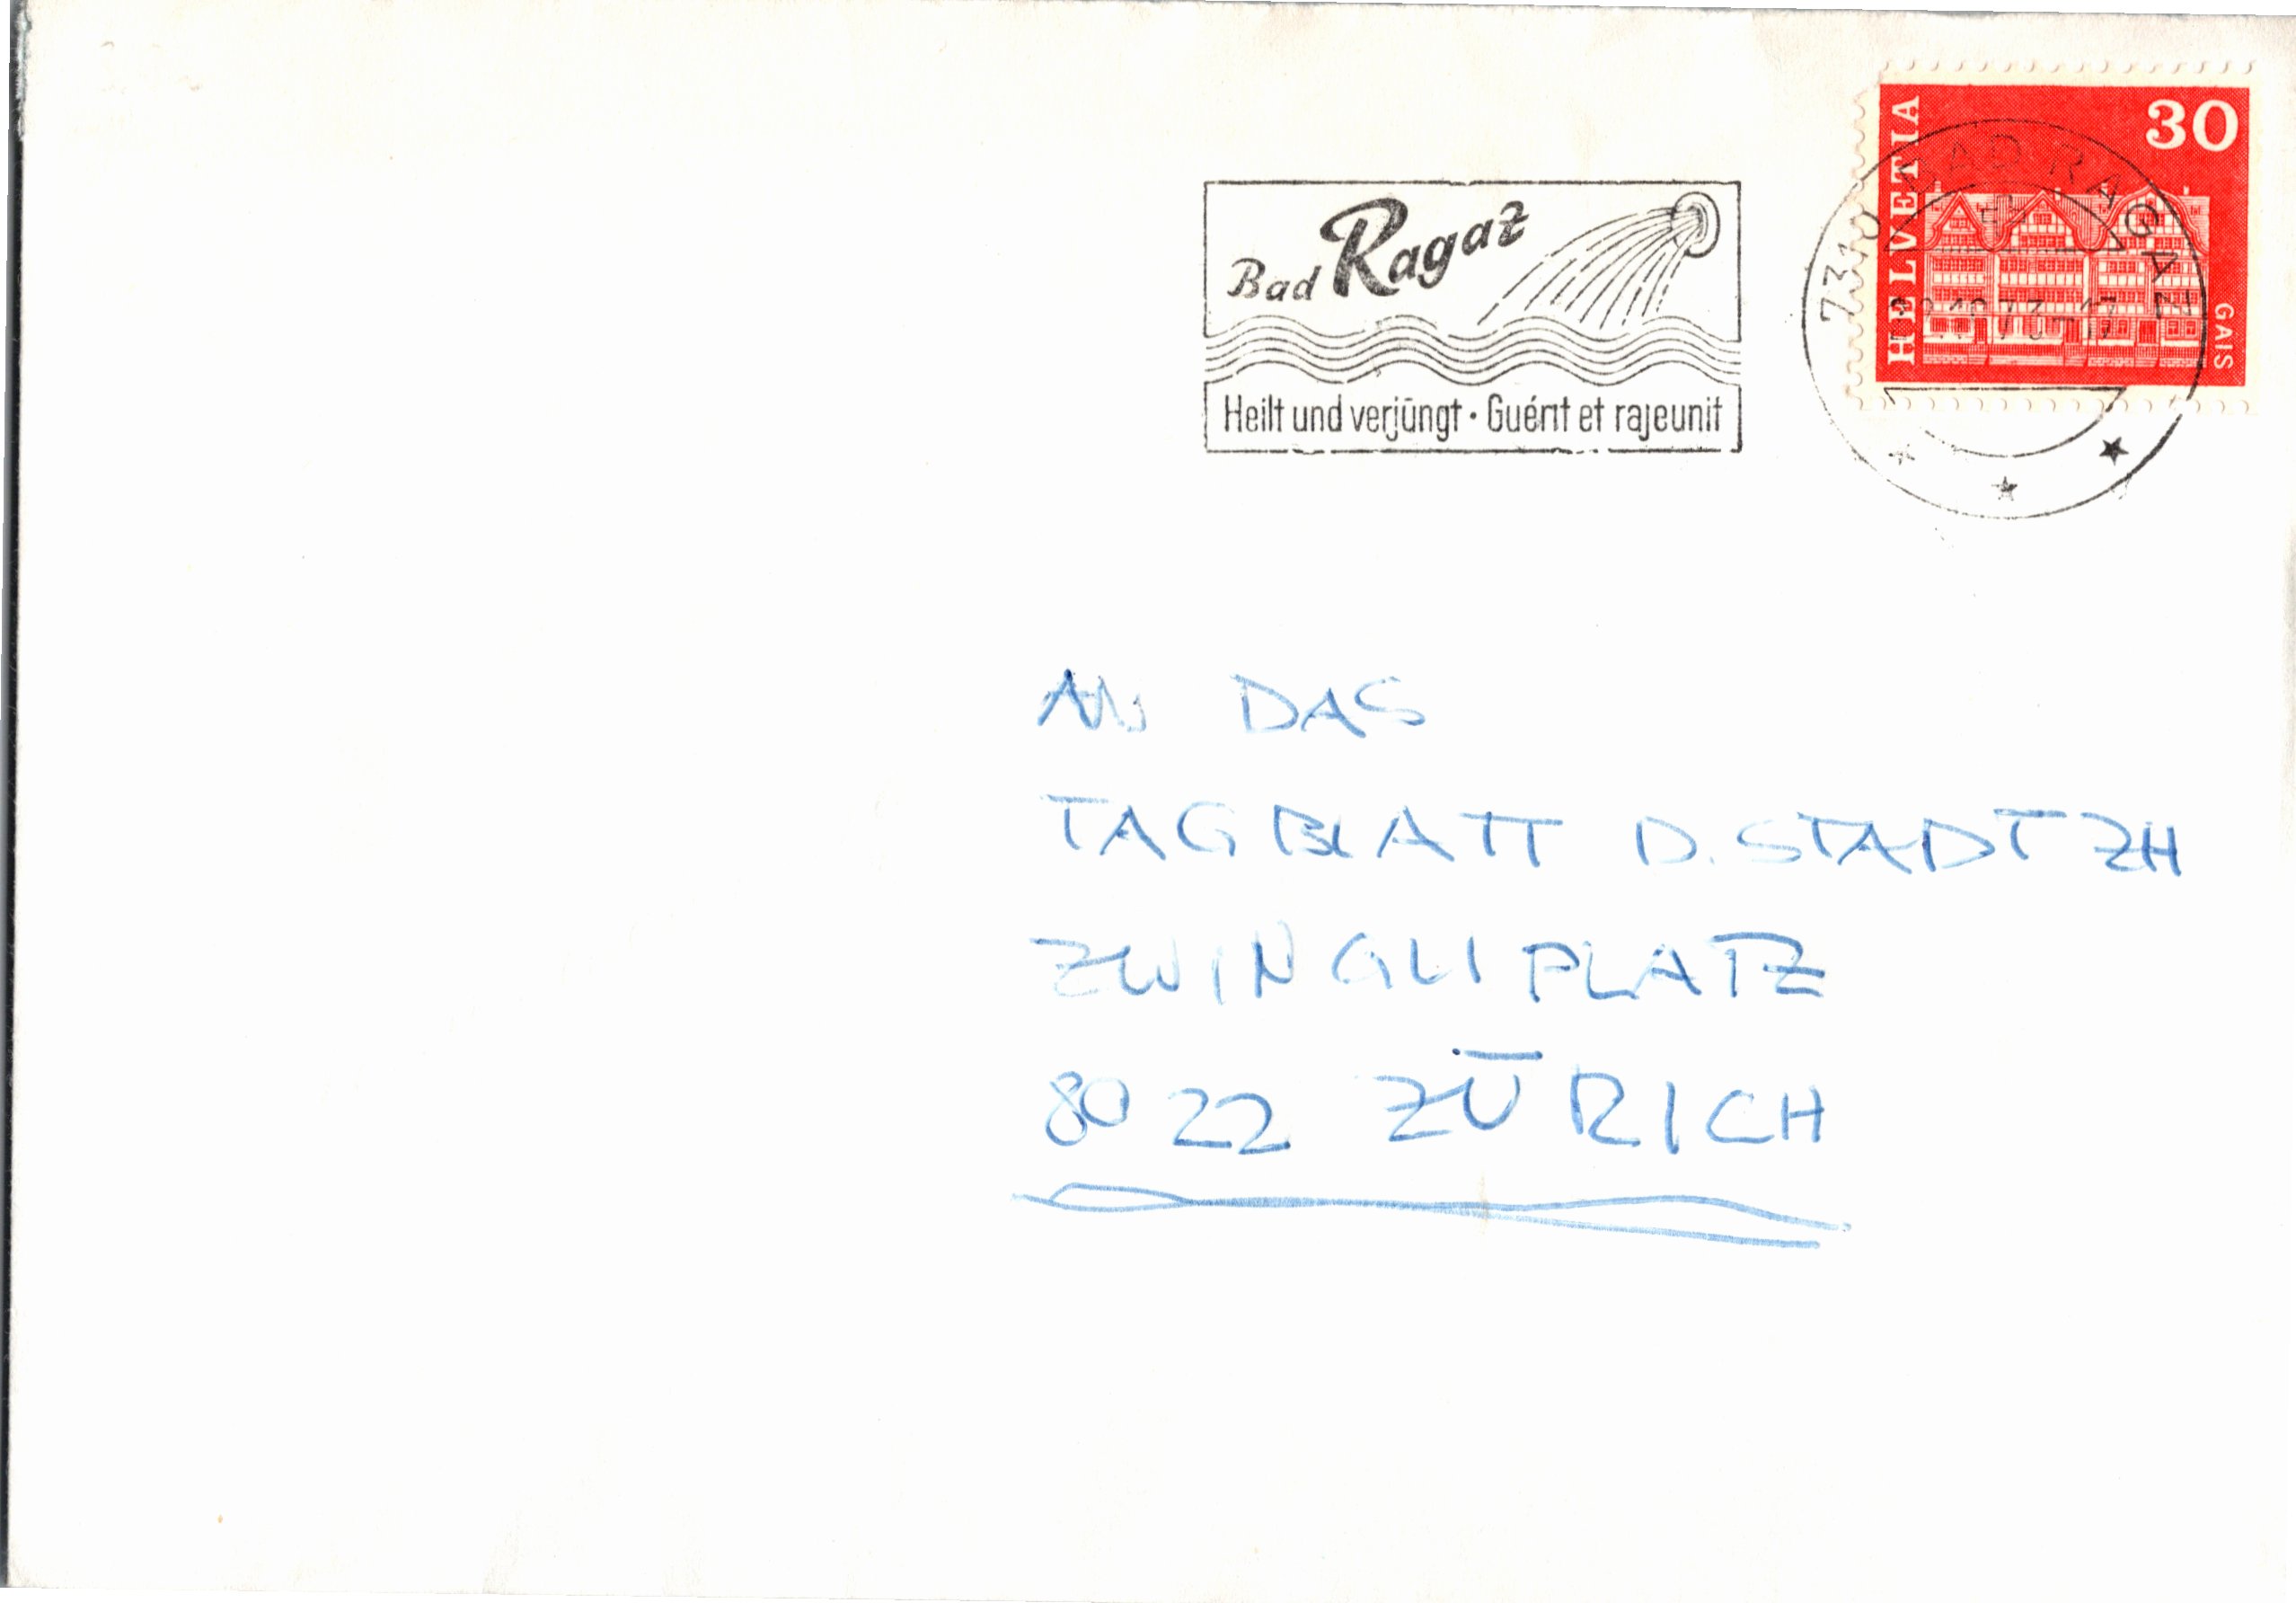 Bad Ragaz
Heilt und verjüngt • Guérit et rajeunit
7310 BAD RAGAZ
HELVETIA
30
GAIS
AN DAS
TAGBLATT D. STADT ZH
ZWINGLIPLATZ
8022 ZÜRICH